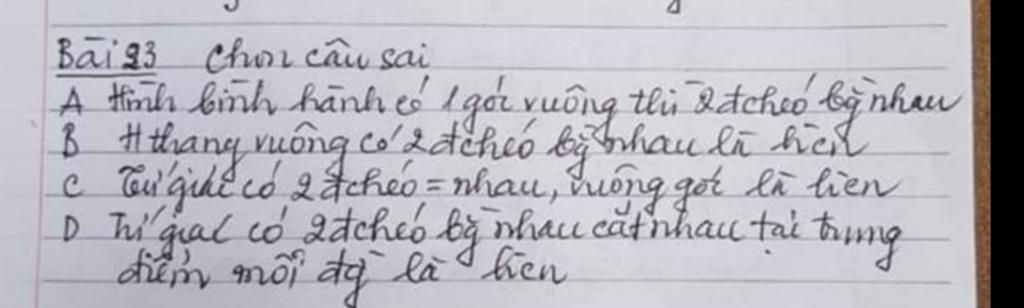 Bài 23 Chọn câu sai
A Hình bình hành có 1 góc vuông thì 2 đchéo bg nhau
B H thang vuông có 2 đchéo bg nhau là hcn
C Tứ giác có 2 đchéo = nhau, vuông góc là hcn
D Tứ giác có 2 đchéo bg nhau cắt nhau tại trung
điểm mỗi đg là hcn